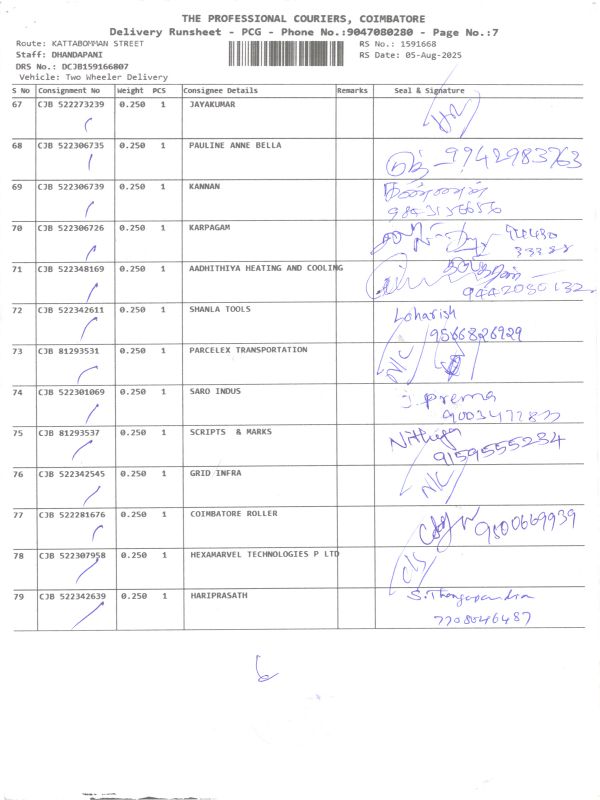 THE PROFESSIONAL COURIERS, COIMBATORE
Delivery Runsheet - PCG - Phone No.:9047080280 - Page No.:7
Route: KATTABOMMAN STREET RS No.: 1591668
Staff: DHANDAPANI RS Date: 05-Aug-2025
DRS No.: DCJB159166807
Vehicle: Two Wheeler Delivery
S No Consignment No Weight PCS Consignee Details Remarks Seal & Signature
67 CJB 522273239 0.250 1 JAYAKUMAR
68 CJB 522306735 0.250 1 PAULINE ANNE BELLA 9942983763
69 CJB 522306739 0.250 1 KANNAN
70 CJB 522306726 0.250 1 KARPAGAM
71 CJB 522348169 0.250 1 AADHITHIYA HEATING AND COOLING 9442050132
72 CJB 522342611 0.250 1 SHANLA TOOLS Loharish
9566826929
73 CJB 81293531 0.250 1 PARCELEX TRANSPORTATION N/C
74 CJB 522301069 0.250 1 SARO INDUS J. Prema
75 CJB 81293537 0.250 1 SCRIPTS & MARKS Nithya
9159555234
76 CJB 522342545 0.250 1 GRID INFRA N/C
77 CJB 522281676 0.250 1 COIMBATORE ROLLER 9500669939
78 CJB 522307958 0.250 1 HEXAMARVEL TECHNOLOGIES P LTD
79 CJB 522342639 0.250 1 HARIPRASATH
7708046487